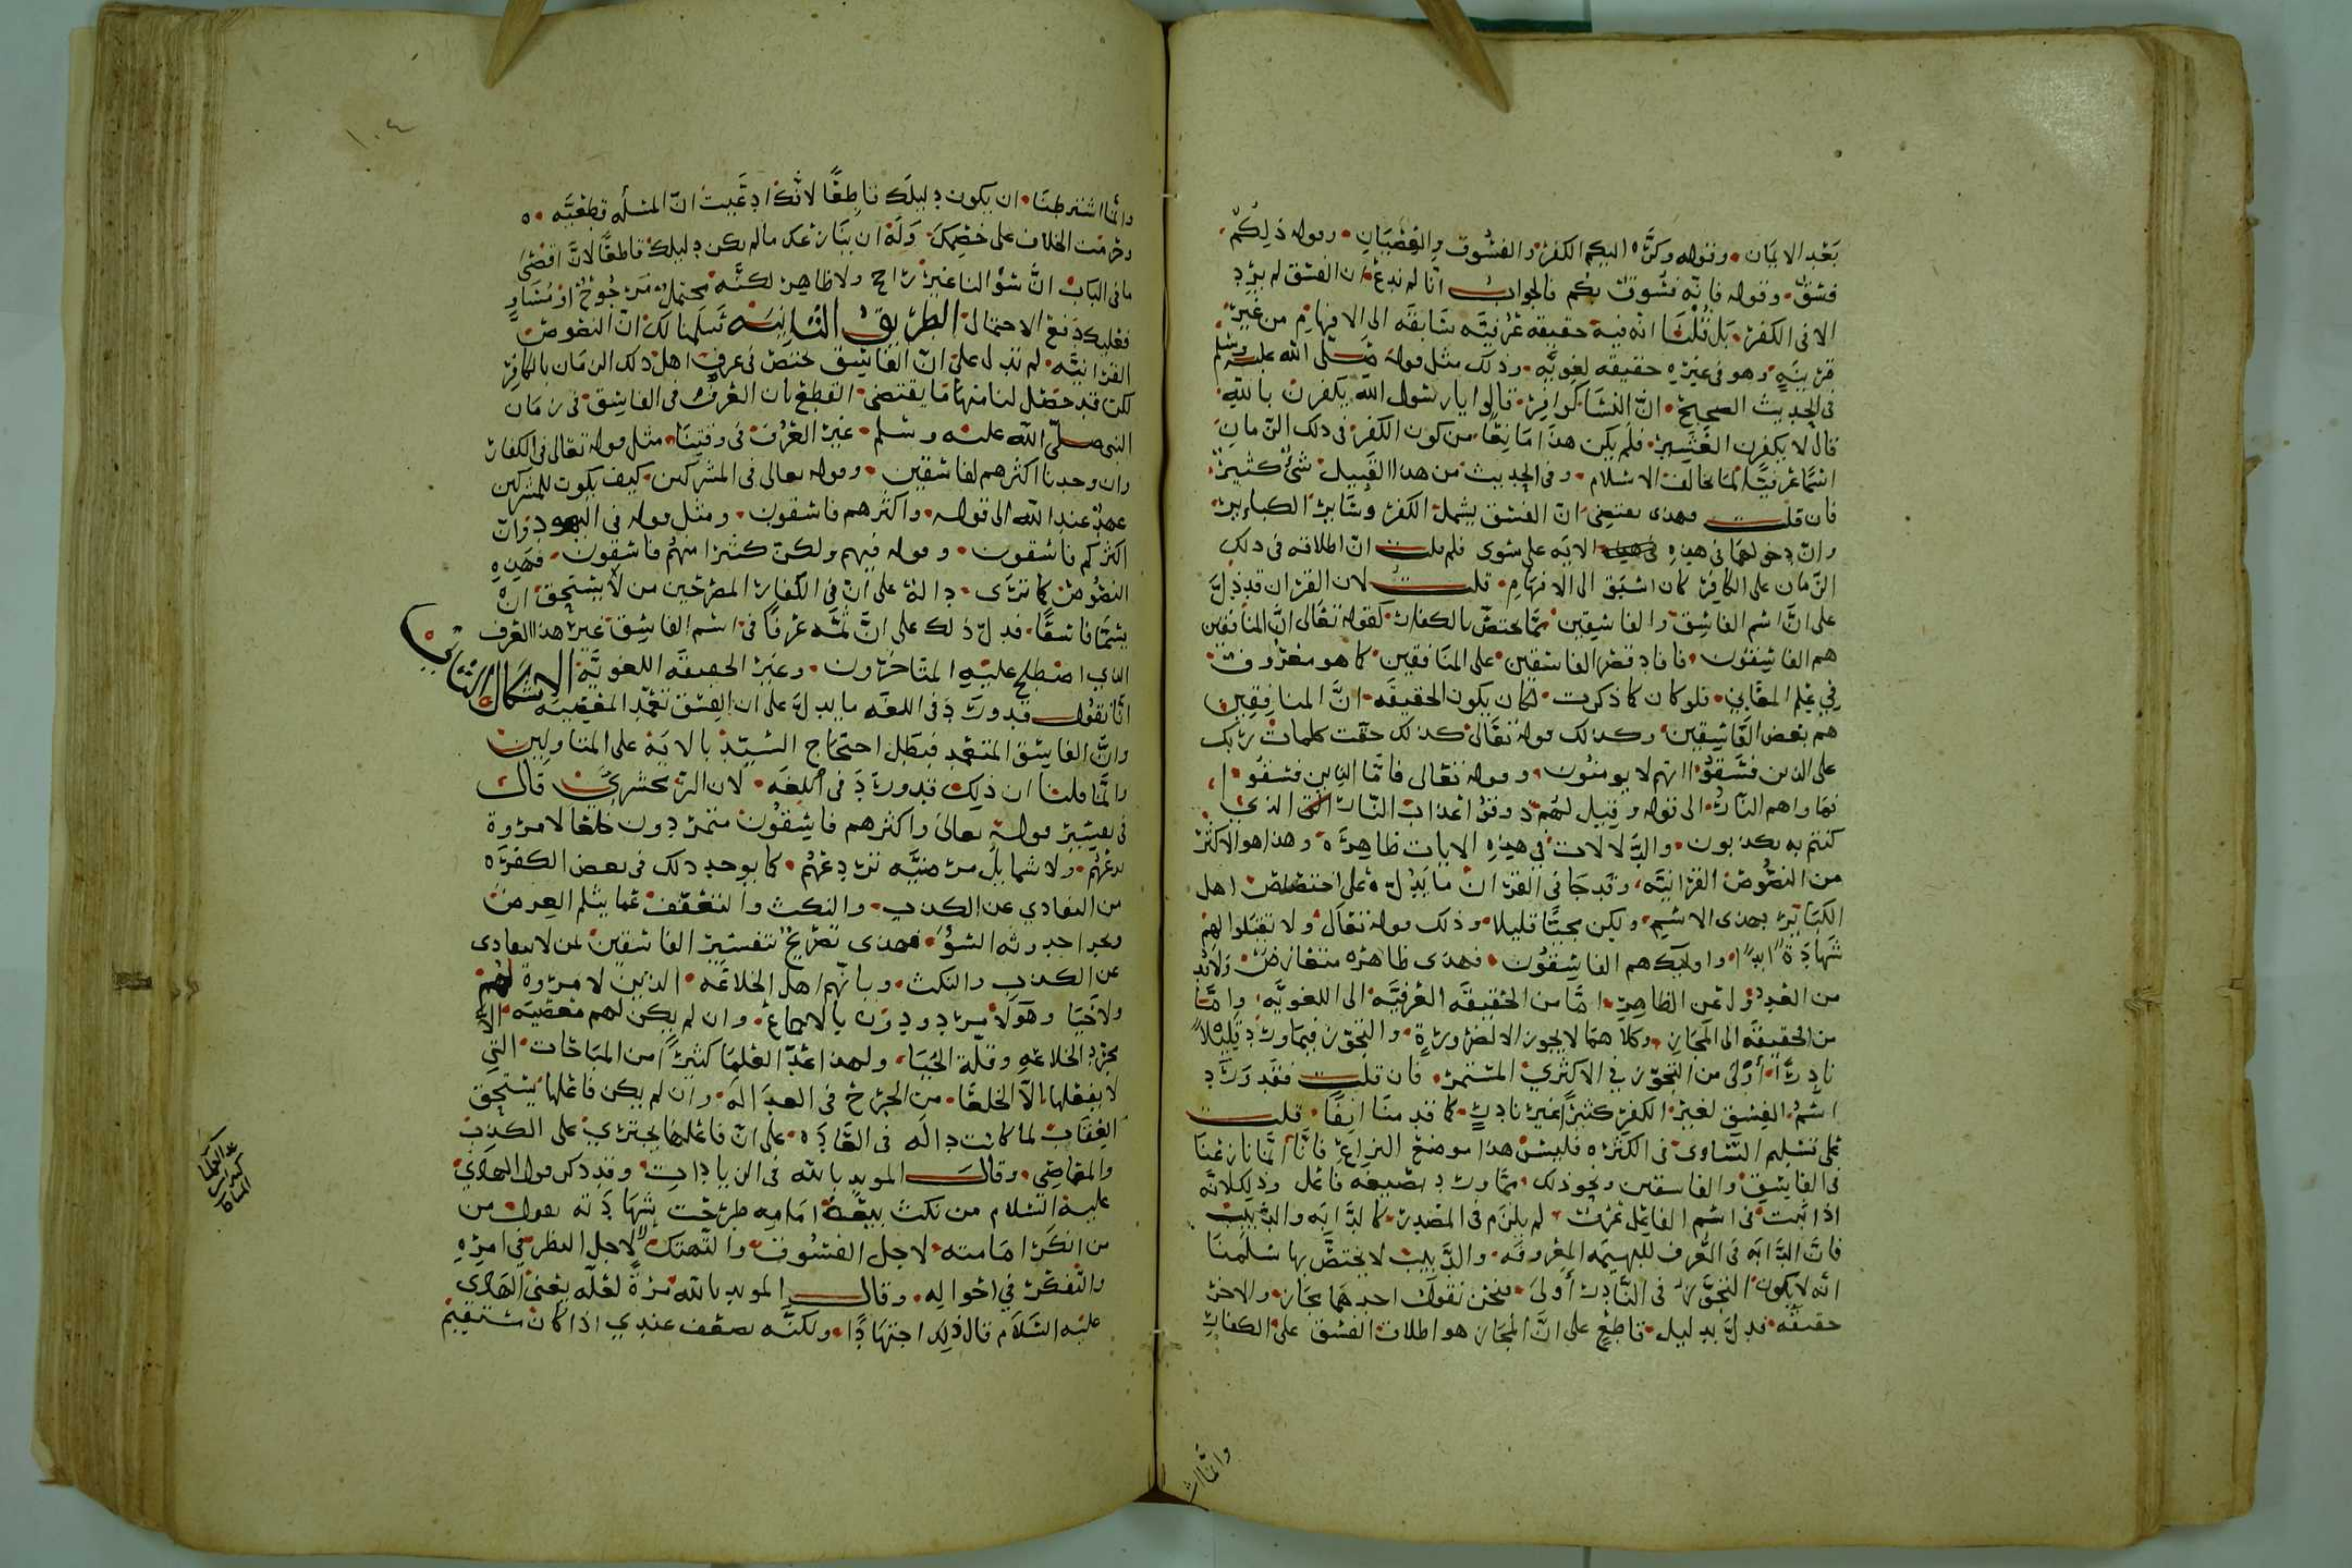 بعد الايمان وقوله وكره اليكم الكفر والفسوق والعصيان وقوله ذلكم
فسق وقوله فانه فسوق بكم فالجواب انا لم ندع ان الفسق لم يرد
الا في الكفر بل قلنا انه فيه حقيقة عرفية سابقة الى الافهام من غير
قرينة وهو في غيره حقيقة لغوية وذلك مثل قوله صلى الله عليه وسلم
في الحديث الصحيح ان النساء كوافر قالوا يا رسول الله يكفرن بالله
قال لا يكفرن العشير فلم يكن هذا مانعا من كون الكفر في ذلك الزمان
اسما عرفيا لما يخالف الاسلام وفي الحديث من هذا القبيل شيء كثير
فان قلت فهذا يقتضي ان الفسق يشمل الكفر وسائر الكباير
وان دخولهما في هذه الايه على سوى فلم قلت ان اطلاقه في ذلك
الزمان على الكافر كان اسبق الى الافهام قلت لان القران قد دل
على ان اسم الفاسق والفاسقين مما يختص بالكفار كقوله تعالى ان المنافقين
هم الفاسقون فافاد قصر الفاسقين على المنافقين كما هو معروف
في علم المعاني فلو كان كما ذكرت لكان يكون الحقيقة ان المنافقين
هم بعض الفاسقين وكذلك قوله تعالى كذلك حقت كلمات ربك
على الذين فسقوا انهم لا يومنون وقوله تعالى فاما الذين فسقوا
فماواهم النار الى قوله وقيل لهم ذوقوا عذاب النار الذي
كنتم به تكذبون والدلالات في هذه الايات ظاهرة وهذا هو الاكثر
من النصوص القرانية وقد جا في القران ما يدل على اختصاص اهل
الكباير بهذا الاسم ولكن مجيئا قليلا وذلك قوله تعالى ولا تقبلوا لهم
شهادة ابدا واوليك هم الفاسقون فهذه ظاهره متعارض ولا بد
من العدول عن الظاهر اما من الحقيقة العرفية الى اللغوية واما
من الحقيقة الى المجاز وكلاهما لا يجوز الا لضرورة والتجوز فيما ورد قليلا
نادرا اولى من التجوز في الاكثري المستمر فان قلت فقد ورد
اسم الفسق لغير الكفر كثيرا غير نادر كما قدمنا انفا قلت
على تسليم التساوي في الكثره فليس هذا موضع النزاع فانا انما نازعنا
في الفاسق والفاسقين ونحو ذلك مما ورد بصيغة فاعل وذلك لانه
اذا ثبت في اسم الفاعل عرف لم يلزم في المصدر كالدابه والدبيب
فان الدابة في العرف للبهيمه المعروفه والدبيب لا يختص بها سلمنا
انه لا يكون التجوز في النادر اولى فنحن نقول احدهما مجاز والاخر
حقيقة فدل بدليل قاطع على ان المجاز هو اطلاق الفسق على الكفار
وانما اشـ
١٠٤
وانما اشترطنا ان يكون دليلك قاطعا لانك ادعيت ان المسأله قطعية
وحرمت الخلاف على خصمك وله ان ينازعك ما لم يكن دليلك قاطعا لان اقصى
ما في الباب ان سؤالنا غير راجح ولا ظاهر لكنه محتمل مرجوح او مساو
فعليك دفع الاحتمال الطريق الثانية سلمنا لك ان النصوص
القرانية لم تدل على ان الفاسق مختص في عرف اهل ذلك الزمان بالكافر
لكن قد حصل لنا منها ما يقتضي القطع بان العرف في الفاسق في زمان
النبي صلى الله عليه وسلم غير العرف في وقتنا مثل قوله تعالى في الكفار
وان وجدنا اكثرهم لفاسقين وقوله تعالى في المشركين كيف يكون للمشركين
عهد عند الله الى قوله واكثرهم فاسقون ومثل قوله في اليهود وان
اكثركم فاسقون وقوله فيهم ولكن كثيرا منهم فاسقون فهذه
النصوص كما ترى دالة على ان في الكفار المصرحين من لا يستحق ان
يسمى فاسقا فدل ذلك على ان ثمه عرفا في اسم الفاسق غير هذا العرف
الذي اصطلح عليه المتاخرون وغير الحقيقة اللغوية الاشكال الثاني
انا نقول قد ورد في اللغه ما يدل على ان الفسق تعمد المعصية
وان الفاسق المتعمد فبطل احتجاج السيد بالاية على المتاولين
وانما قلنا ان ذلك قد ورد في اللغه لان الزمخشري قال
في تفسير قوله تعالى واكثرهم فاسقون متمردون خلعا لا مروة
تزعهم ولا شمايل مرضية تردعهم كما يوجد ذلك في بعض الكفره
من التفادي عن الكذب والنكث والتعفف عما يثلم العرض
ويجر احدوثه السوء فهذا تصريح بتفسير الفاسقين بمن لا يتفادى
عن الكذب والنكث وبانهم اهل الخلاعه الذين لا مروة لهم
ولا حيا وهولا مردودون بالاجماع وان لم يكن لهم معصية الا
مجرد الخلاعه وقلة الحيا ولهذا عد العلما كثيرا من المباحات التي
لا يفعلها الا الخلعا من الجرح في العدالة وان لم يكن فاعلها يستحق
العقاب لما كانت دالة في العاده على ان فاعلها يجتري على الكذب
والمعاصي وقال المويد بالله في الزيادات وقد ذكر قول الهادي
عليه السلام من نكث بيعة امامه طرحت شهادته بقول من
من انكر امامته لاجل الفسوق والتهتك لا لاجل النظر في امره
والتفكر في احواله وقال المويد بالله مرة لعله يعني الهادي
عليه السلام قال ذلك اجتهادا ولكنه يضعف عندي اذا كان مستقيم